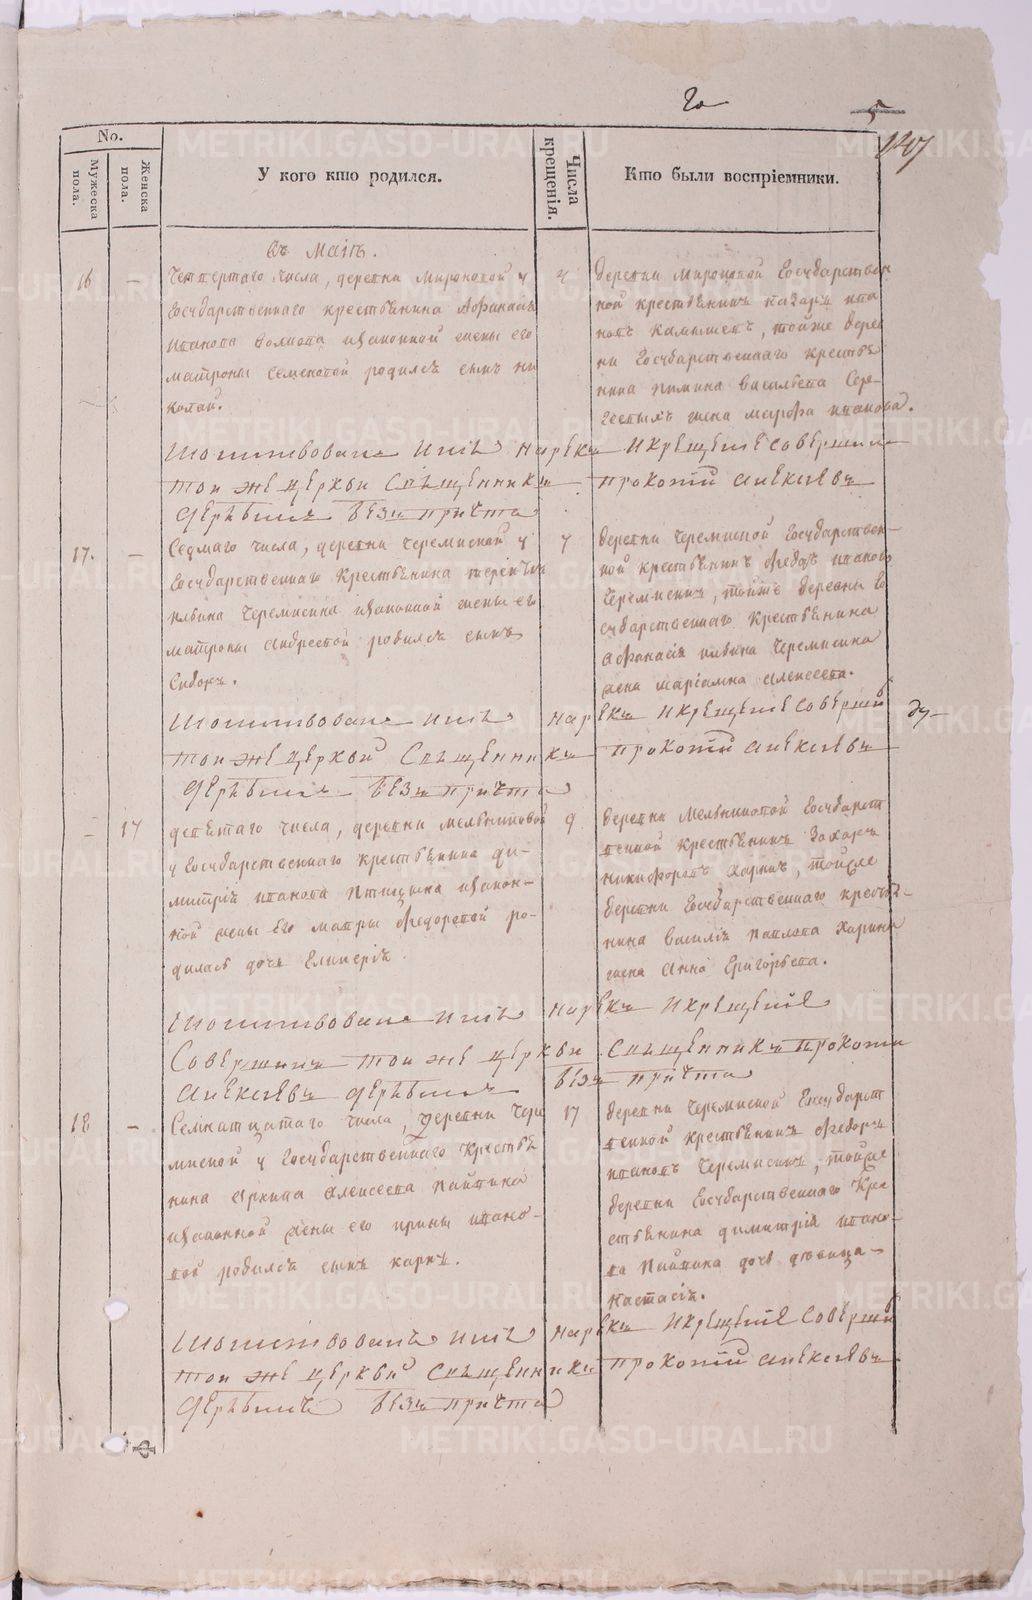 No.
Мужеска пола.
Женска пола.
У кого кто родился.
Числа крещенія.
Кто были воспріемники.
въ Маіѣ.
16
—
Четвертаго числа, деревни Мироновой у
Государственнаго крестьянина Афанасія
Иванова Волкова изаконной жены его
матроны Семеновой родился сынъ ни
колай.
4
деревни Мироновой Государствен
ной крестьянинъ назаръ ива
новъ Камышевъ, тойже дерев
ни Государственнаго крестья
нина Пимина васильева Сер-
гевыхъ жена марфа иванова.
Молитвовалъ имя нарекъ икрещеніе совершилъ
той же церкви священникъ прокопій алексіевъ
безъ причта
17.
—
Седмаго числа, деревни черемиской у
Государственнаго крестьянина терентія
ивлина черемисина изаконной жены его
матроны андреевой родился сынъ
Сидоръ.
7
деревни черемиской Государствен-
ной крестьянинъ Федоръ ивановъ
Черемисинъ, тойже деревни Го
сударственнаго крестьянина
Афанасія ивлина черемисина
жена маріамна алексеева.
Молитвовалъ имя нарекъ икрещеніе соверши
той же церкви священникъ прокопій алексіевъ
безъ причта
—
17
девятаго числа, деревни мельниковой
у Государственнаго крестьянина ди-
митрія иванова птицына изакон-
ной жены его матры Федоровой ро-
дилась дочь Гликерія.
9
деревни мельниковой Государст
венной крестьянинъ Захаръ
никифоровъ харинъ, тойже
деревни Государственнаго кресть-
нина василія павлова харина
жена Анна Григорьева.
Молитвовалъ имя нарекъ икрещеніе
совершилъ той же церкви священникъ прокопій
алексіевъ безъ причта
18
—
Семнатцатаго числа, деревни чере
миской у Государственнаго крестья
нина алексеева
изаконной жены его ирины ивано-
вой родился сынъ карпъ.
17
деревни черемиской Государст
венной крестьянинъ Федоръ
ивановъ черемисинъ, тойже
деревни Государственнаго кре
стьянина димитрія ивано-
ва дочь девица
настасія.
Молитвовалъ имя нарекъ икрещеніе соверши
той же церкви священникъ прокопій алексіевъ
безъ причта
METRIKI.GASO-URAL.RU